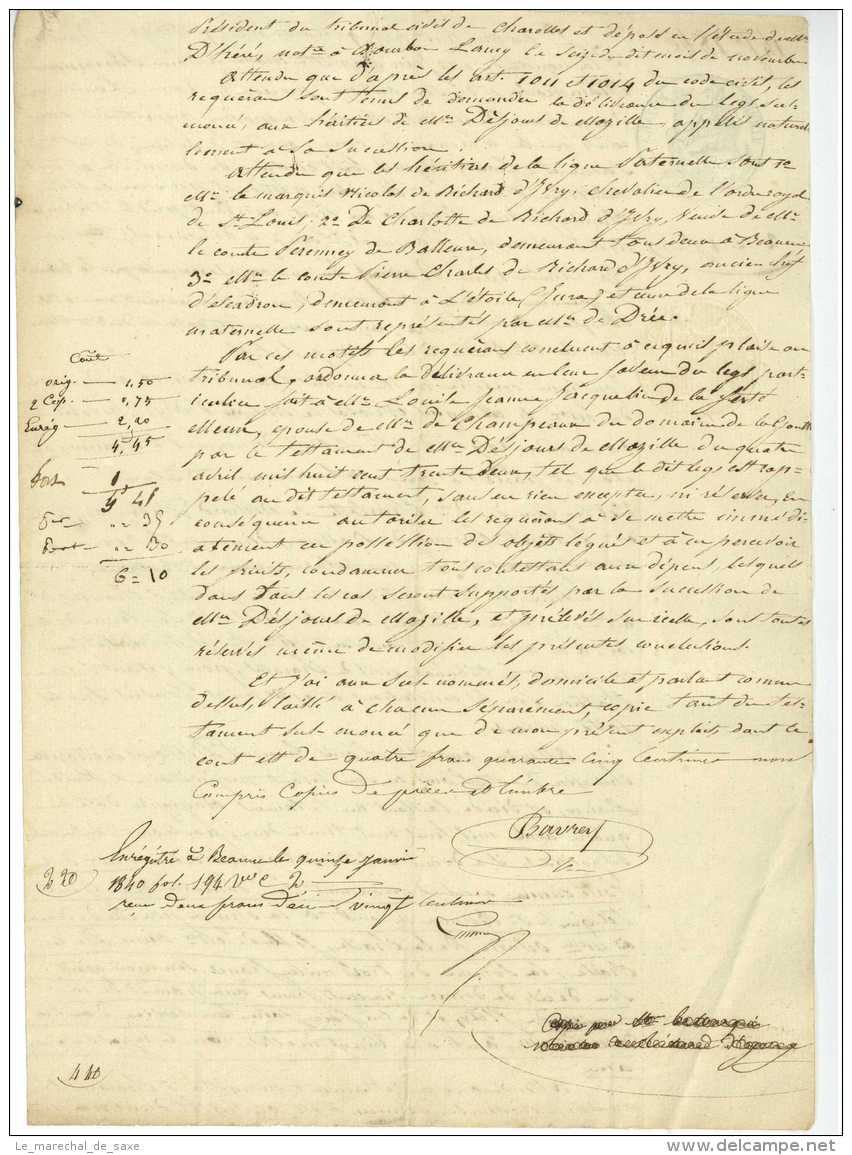 Président du tribunal civil de Charolles et déposé en l'étude de Me
D'héré, notre à Bourbon Lancy le seize dit mois de novembre
Attendu que d'après les art. 1011 et 1014 du code civil, les
requérans sont tenus de demander la délivrance du legs sus-
énoncé, aux héritiers de Mme Désjours de Mazille, appelés naturel-
lement à sa succession.
Attendu que les héritiers de la ligne paternelle sont 1e
Mr. le marquis Nicolas de Richard d'Ivry, chevalier de l'ordre royal
de St Louis; 2e De Charlotte de Richard d'Ivry, veuve de Mr
le comte Perenney de Balleure, demeurant tous deux à Beaune
3e Mr le comte Pierre Charles de Richard d'Ivry, ancien chef
d'escadron, demeurant à L'étoile (Jura) et ceux de la ligne
maternelle sont représentés par Mr. de Drée.
Par ces motifs les requérans concluent à ce qu'il plaise au
tribunal, ordonner la délivrance en leur faveur du legs part-
iculier fait à Me Louise Jeanne Jacqueline de la ferté
Meun, épouse de Mr. de Champeaux du domaine de la
par le testament de Mme Désjours de Mazille du quatre
avril mil huit cent trente deux, tel que le dit legs est rap-
pelé au dit testament, sans en rien excepter, ni réserver, en
conséquence autoriser les requérans à se mettre immédi-
atement en possession des objets légués et à en percevoir
les fruits, condamner tous contestans aux dépens, lesquels
dans tous les cas seront supportés par la succession de
Mme Désjours de Mazille, et prélevés sur icelle, sous toutes
réserves même de modifier les présentes conclusions.
Et j'ai aux sus-nommés, domicile et parlant comme
dessus, laissé à chacun séparément, copie tant du tes-
tament sus-énoncé que de mon présent exploit dont le
cout est de quatre francs quarante cinq centimes non
Compris Copies de pièces et timbre
Coût
orig. — 1,50
2 Cop. — 0,75
Enreg — 2,20
4,45
1
5 45
" 35
Port — " 30
6 = 10
Bavrey
Enregistré à Beaune le quinze janvier
1840 fol. 194 Vo C 2
reçu deux francs décime vingt centimes
2 20
4 40
Copie pour Mr le marquis
Le_marechal_de_saxe
delcampe.net